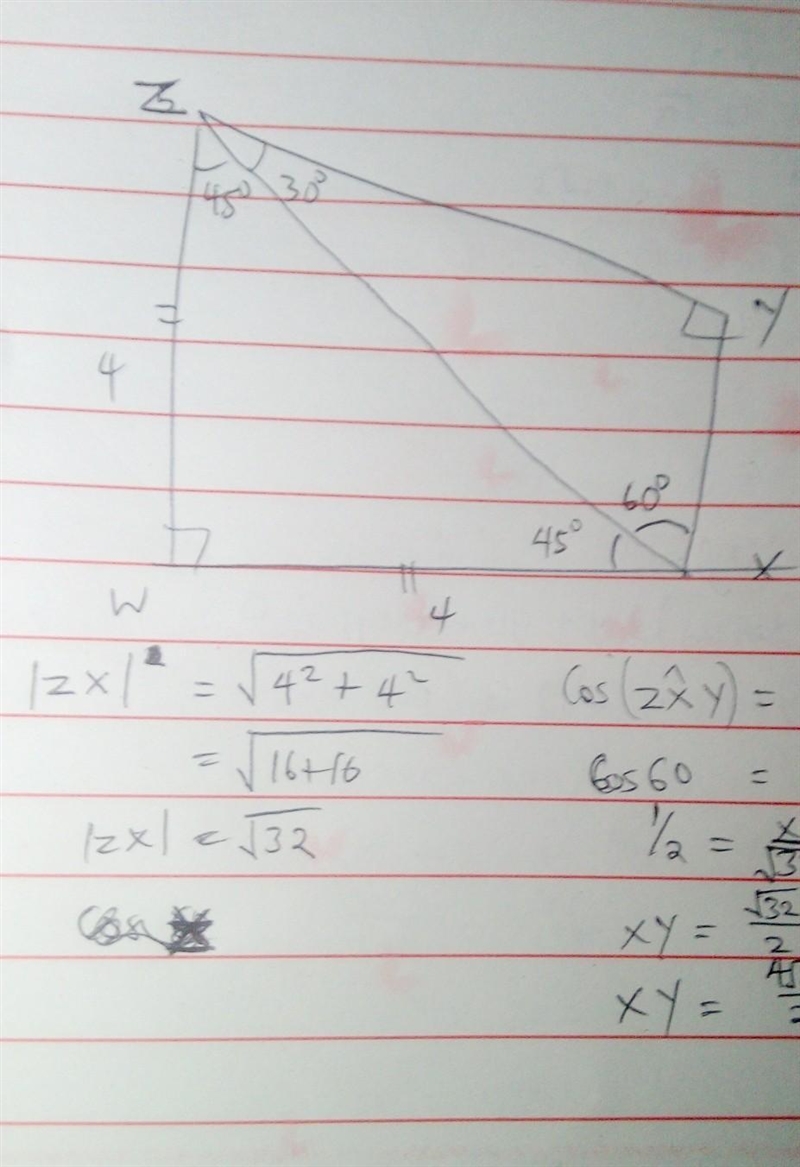 Z
45° 30°
Y
4
60°
45°
X
W
4
|ZX| = √4² + 4²
= √16+16
|ZX| = √32
Cos(ZX̂Y) =
Cos60 =
1/2 = X/√3
XY = √32/2
XY =